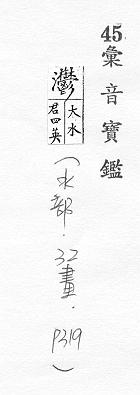 45彙音寶鑑
灪
大水
君四英
(水部.32畫.P319)